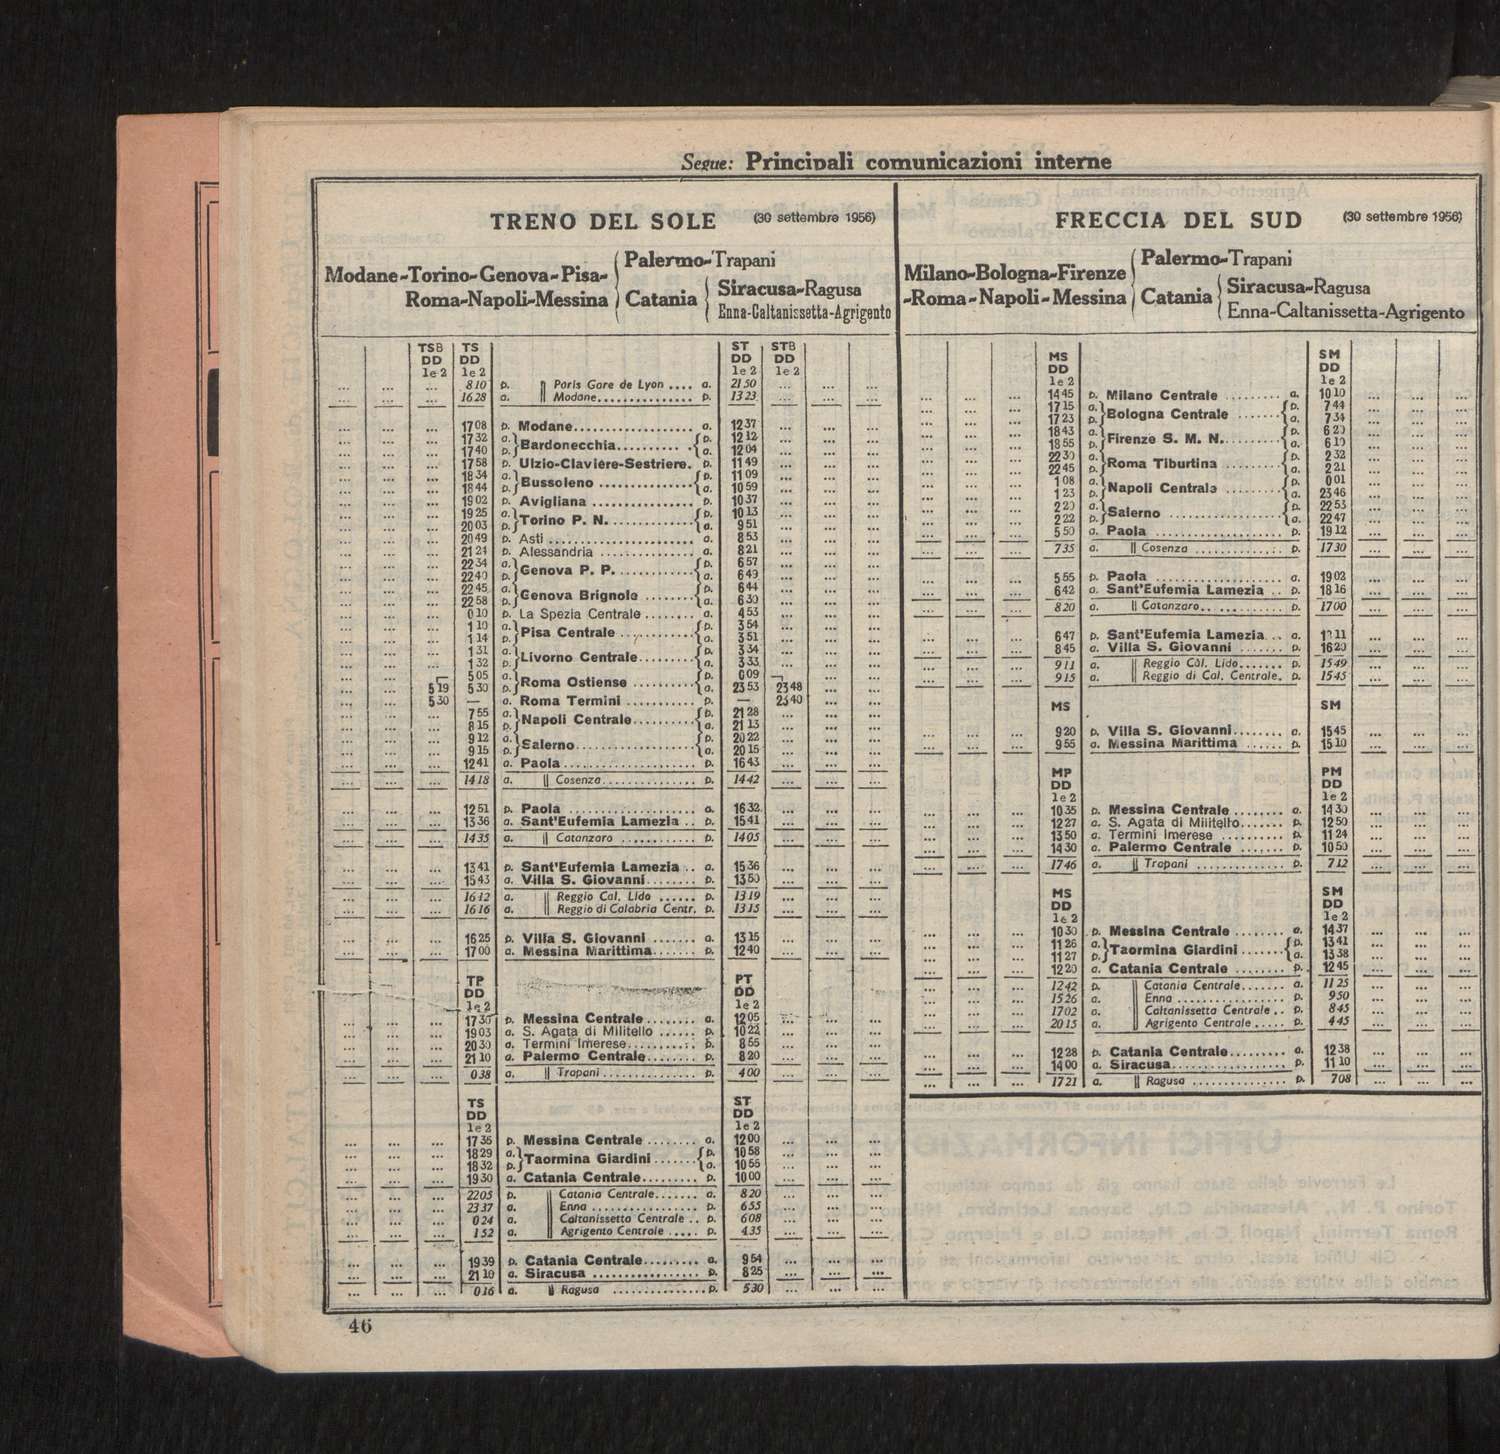 Segue: Principali comunicazioni interne
TRENO DEL SOLE (30 settembre 1956)
Modane-Torino-Genova-Pisa-Roma-Napoli-Messina
Palermo-Trapani
Catania
Siracusa-Ragusa
Enna-Caltanissetta-Agrigento
TSB TS ST STB
DD DD DD DD
1e2 1e2 1e2 1e2
... ... ... 8 10 p. Paris Gare de Lyon .... a. 21 50 ... ... ...
... ... ... 16 28 a. Modane............... p. 13 23 ... ... ...
... ... ... 17 08 p. Modane................... a. 12 37 ... ... ...
... ... ... 17 32 a. Bardonecchia.......... p. 12 12 ... ... ...
... ... ... 17 40 p. a. 12 04 ... ... ...
... ... ... 17 58 p. Ulzio-Clavière-Sestriere. p. 11 49 ... ... ...
... ... ... 18 34 a. Bussoleno .............. p. 11 09 ... ... ...
... ... ... 18 44 p. a. 10 59 ... ... ...
... ... ... 19 02 p. Avigliana ............... p. 10 37 ... ... ...
... ... ... 19 25 a. Torino P. N............. p. 10 13 ... ... ...
... ... ... 20 03 p. a. 9 51 ... ... ...
... ... ... 20 49 p. Asti ....................... a. 8 53 ... ... ...
... ... ... 21 24 p. Alessandria ............... a. 8 21 ... ... ...
... ... ... 22 34 a. Genova P. P............. p. 6 57 ... ... ...
... ... ... 22 40 p. a. 6 49 ... ... ...
... ... ... 22 45 a. Genova Brignole ........ p. 6 44 ... ... ...
... ... ... 22 58 p. a. 6 30 ... ... ...
... ... ... 0 10 p. La Spezia Centrale........ a. 4 53 ... ... ...
... ... ... 1 10 a. Pisa Centrale ............ p. 3 54 ... ... ...
... ... ... 1 14 p. a. 3 51 ... ... ...
... ... ... 1 31 a. Livorno Centrale......... p. 3 34 ... ... ...
... ... ... 1 32 p. a. 3 33 ... ... ...
... ... 5 05 a. Roma Ostiense .......... p. 0 09 ... ...
... ... 5 19 5 30 p. a. 23 53 23 48 ... ...
... ... 5 30 — a. Roma Termini ........... p. — 23 40 ... ...
... ... ... 7 55 a. Napoli Centrale.......... p. 21 28 ... ... ...
... ... ... 8 15 p. a. 21 13 ... ... ...
... ... ... 9 12 a. Salerno................... p. 20 22 ... ... ...
... ... ... 9 15 p. a. 20 15 ... ... ...
... ... ... 12 41 a. Paola..................... p. 16 43 ... ... ...
... ... ... 14 18 a. Cosenza............... p. 14 42 ... ... ...
... ... ... 12 51 p. Paola .................... a. 16 32 ... ... ...
... ... ... 13 36 a. Sant'Eufemia Lamezia .. p. 15 41 ... ... ...
... ... ... 14 35 a. Catanzaro ............ p. 14 05 ... ... ...
... ... ... 13 41 p. Sant'Eufemia Lamezia .. a. 15 36 ... ... ...
... ... ... 15 43 a. Villa S. Giovanni........ p. 13 50 ... ... ...
... ... ... 16 12 a. Reggio Cal. Lido ...... p. 13 19 ... ... ...
... ... ... 16 16 a. Reggio di Calabria Centr. p. 13 15 ... ... ...
... ... ... 16 25 p. Villa S. Giovanni ....... a. 13 15 ... ... ...
... ... ... 17 00 a. Messina Marittima....... p. 12 40 ... ... ...
TP PT
DD DD
1e2 1e2
... ... ... 17 30 p. Messina Centrale........ a. 12 05 ... ... ...
... ... ... 19 03 a. S. Agata di Militello ...... p. 10 22 ... ... ...
... ... ... 20 30 a. Termini Imerese........... p. 8 55 ... ... ...
... ... ... 21 10 a. Palermo Centrale........ p. 8 20 ... ... ...
... ... ... 0 38 a. Trapani............... p. 4 00 ... ... ...
TS ST
DD DD
1e2 1e2
... ... ... 17 35 p. Messina Centrale ........ a. 12 00 ... ... ...
... ... ... 18 29 a. Taormina Giardini ....... p. 10 58 ... ... ...
... ... ... 18 32 p. a. 10 55 ... ... ...
... ... ... 19 30 a. Catania Centrale......... p. 10 00 ... ... ...
... ... ... 22 05 p. Catania Centrale....... a. 8 20 ... ... ...
... ... ... 23 37 a. Enna ................. p. 6 55 ... ... ...
... ... ... 0 24 a. Caltanissetta Centrale .. p. 6 08 ... ... ...
... ... ... 1 52 a. Agrigento Centrale ..... p. 4 35 ... ... ...
... ... ... 19 39 p. Catania Centrale......... a. 9 54 ... ... ...
... ... ... 21 10 a. Siracusa ................. p. 8 25 ... ... ...
... ... ... 0 16 a. Ragusa ............... p. 5 30 ... ... ...
46
FRECCIA DEL SUD (30 settembre 1956)
Milano-Bologna-Firenze-Roma-Napoli-Messina
Palermo-Trapani
Catania
Siracusa-Ragusa
Enna-Caltanissetta-Agrigento
MS SM
DD DD
1e2 1e2
... ... ... 14 45 p. Milano Centrale ......... a. 10 10 ... ... ...
... ... ... 17 15 a. Bologna Centrale ....... p. 7 44 ... ... ...
... ... ... 17 23 p. a. 7 34 ... ... ...
... ... ... 18 43 a. Firenze S. M. N......... p. 6 20 ... ... ...
... ... ... 18 55 p. a. 6 10 ... ... ...
... ... ... 22 30 a. Roma Tiburtina ......... p. 2 32 ... ... ...
... ... ... 22 45 p. a. 2 21 ... ... ...
... ... ... 1 08 a. Napoli Centrale ......... p. 0 01 ... ... ...
... ... ... 1 23 p. a. 23 46 ... ... ...
... ... ... 2 20 a. Salerno .................. p. 22 53 ... ... ...
... ... ... 2 22 p. a. 22 47 ... ... ...
... ... ... 5 50 a. Paola .................... p. 19 12 ... ... ...
... ... ... 7 35 a. Cosenza .............. p. 17 30 ... ... ...
... ... ... 5 55 p. Paola .................... a. 19 02 ... ... ...
... ... ... 6 42 a. Sant'Eufemia Lamezia .. p. 18 16 ... ... ...
... ... ... 8 20 a. Catanzaro............. p. 17 00 ... ... ...
... ... ... 6 47 p. Sant'Eufemia Lamezia... a. 11 ... ... ...
... ... ... 8 45 a. Villa S. Giovanni ....... p. 16 20 ... ... ...
... ... ... 9 11 a. Reggio Cal. Lido....... p. 15 49 ... ... ...
... ... ... 9 15 a. Reggio di Cal. Centrale. p. 15 45 ... ... ...
MS SM
... ... ... 9 20 p. Villa S. Giovanni........ a. 15 45 ... ... ...
... ... ... 9 55 a. Messina Marittima ...... p. 15 10 ... ... ...
MP PM
DD DD
1e2 1e2
... ... ... 10 35 p. Messina Centrale ........ a. 14 30 ... ... ...
... ... ... 12 27 a. S. Agata di Militello....... p. 12 50 ... ... ...
... ... ... 13 50 a. Termini Imerese .......... p. 11 24 ... ... ...
... ... ... 14 30 a. Palermo Centrale ....... p. 10 50 ... ... ...
... ... ... 17 46 a. Trapani .............. p. 7 12 ... ... ...
MS SM
DD DD
1e2 1e2
... ... ... 10 30 p. Messina Centrale ........ a. 14 37 ... ... ...
... ... ... 11 26 a. Taormina Giardini ....... p. 13 41 ... ... ...
... ... ... 11 27 p. a. 13 38 ... ... ...
... ... ... 12 20 a. Catania Centrale ........ p. 12 45 ... ... ...
... ... ... 12 42 p. Catania Centrale....... a. 11 25 ... ... ...
... ... ... 15 26 a. Enna ................. p. 9 50 ... ... ...
... ... ... 17 02 a. Caltanissetta Centrale .. p. 8 45 ... ... ...
... ... ... 20 15 a. Agrigento Centrale ..... p. 4 45 ... ... ...
... ... ... 12 28 p. Catania Centrale......... a. 12 38 ... ... ...
... ... ... 14 00 a. Siracusa.................. p. 11 10 ... ... ...
... ... ... 17 21 a. Ragusa ............... p. 7 08 ... ... ...